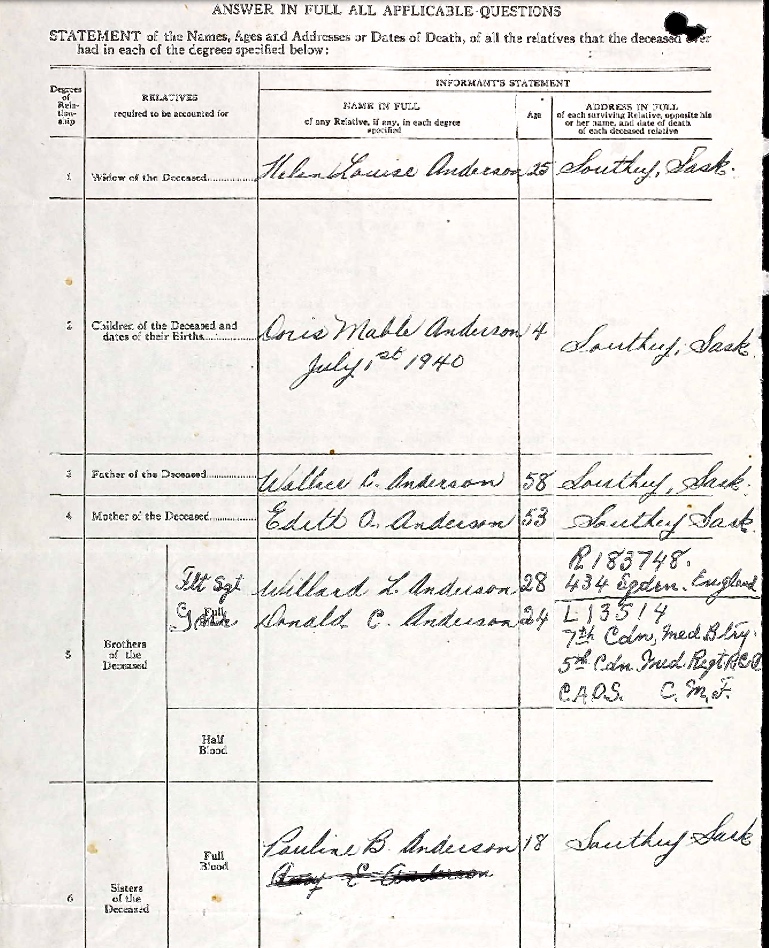 ANSWER IN FULL ALL APPLICABLE QUESTIONS
STATEMENT of the Names, Ages and Addresses or Dates of Death, of all the relatives that the deceased ever
had in each of the degrees specified below:
Degrees of Rela- tion- ship
RELATIVES
required to be accounted for
INFORMANT'S STATEMENT
NAME IN FULL
of any Relative, if any, in each degree
specified
Age
ADDRESS IN FULL
of each surviving Relative, opposite his
or her name, and date of death
of each deceased relative
1 Widow of the Deceased Helen Louise Anderson 25 Southey, Sask.
2 Children of the Deceased and
dates of their Births Doris Mable Anderson 4 Southey, Sask.
July 1st 1940
3 Father of the Deceased Wallace C. Anderson 58 Southey, Sask.
4 Mother of the Deceased Edith O. Anderson 53 Southey Sask.
5 Brothers
of the
Deceased
Full
Flt Sgt Willard L. Anderson 28 R183748.
434 Sqdn. England
Gnr Donald C. Anderson 24 L13514
7th Cdn. Med Btry.
5th Cdn Med Regt RCA
C.A.O.S. C.M.F.
Half
Blood
6 Sisters
of the
Deceased
Full
Blood
Pauline B. Anderson 18 Southey Sask
E Anderson